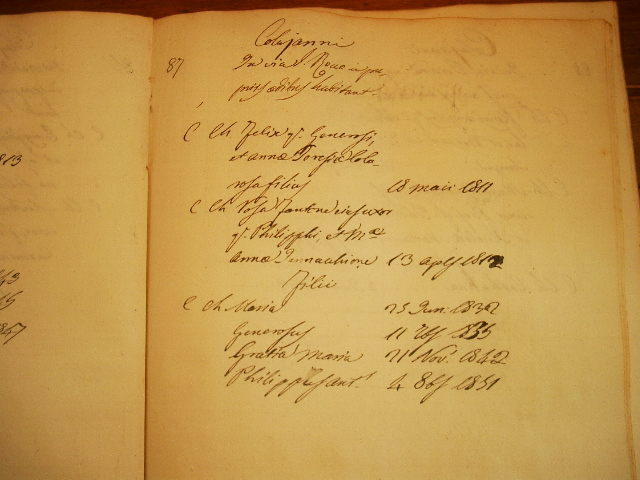 Colajanni
87 In via S. Roco in pro
priis ædibus habitant.
C Ch Felix qm. Generosi,
et annæ Teresiæ Cola
rosa filius 18 maii 1811
C Ch Rosa Jantne eius uxor
qm. Philippi, et Mæ
annæ Pennachione 13 aplis 1812
Filii
C Ch Maria 25 Jun: 1832
Generosus 11 1835
Gratia Maria 21 Nov: 1842
Philippus ant.s 4 8bs 1851
813
43
5
1847